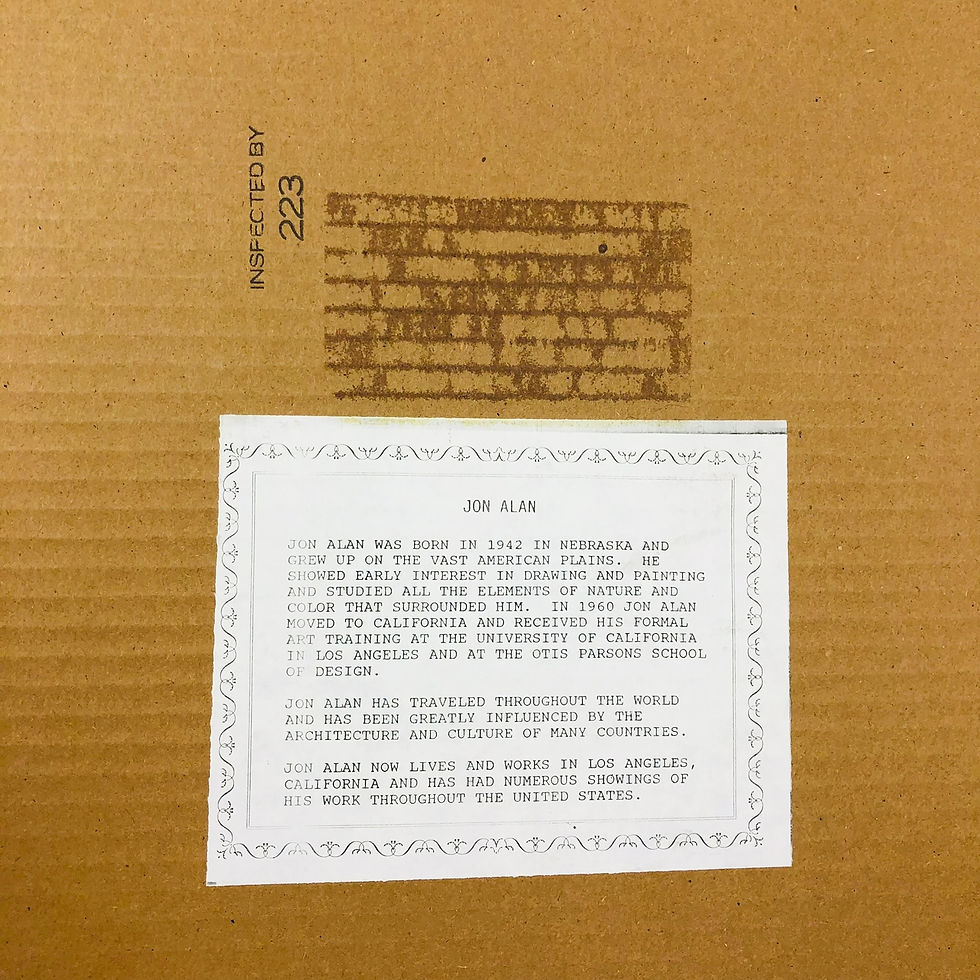 INSPECTED BY
223
JON ALAN
JON ALAN WAS BORN IN 1942 IN NEBRASKA AND
GREW UP ON THE VAST AMERICAN PLAINS. HE
SHOWED EARLY INTEREST IN DRAWING AND PAINTING
AND STUDIED ALL THE ELEMENTS OF NATURE AND
COLOR THAT SURROUNDED HIM. IN 1960 JON ALAN
MOVED TO CALIFORNIA AND RECEIVED HIS FORMAL
ART TRAINING AT THE UNIVERSITY OF CALIFORNIA
IN LOS ANGELES AND AT THE OTIS PARSONS SCHOOL
OF DESIGN.
JON ALAN HAS TRAVELED THROUGHOUT THE WORLD
AND HAS BEEN GREATLY INFLUENCED BY THE
ARCHITECTURE AND CULTURE OF MANY COUNTRIES.
JON ALAN NOW LIVES AND WORKS IN LOS ANGELES,
CALIFORNIA AND HAS HAD NUMEROUS SHOWINGS OF
HIS WORK THROUGHOUT THE UNITED STATES.